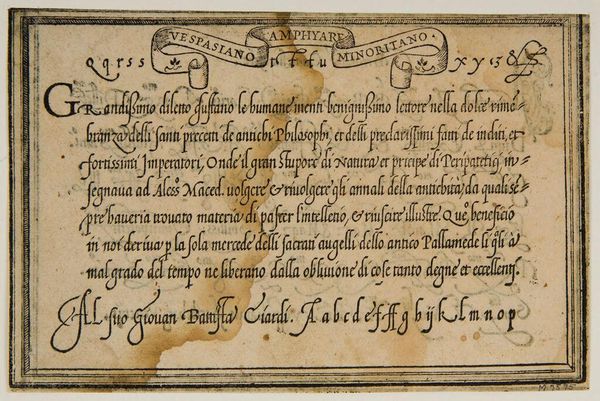 VESPASIANO AMPHYARE MINORITANO ·
Q q r s s t t t u x y z &
GRandissimo diletto gustano le humane menti benignissimo lettore nella dolce rimē=
branza delli santi precetti de antichi Philosophi, et delli preclarissimi fatti de incliti, et
fortissimi Imperatori, Onde il gran stupore di Natura et prīcipe di Peripatetiq, in=
segnaua ad Aless.º Maced. uolgere & riuolgere gli annali della antichità, da quali sē=
pre haueria trouato materia di pascer l'intelletto, & riuscire illustre. Quº beneficio
in noi deriua p la sola mercede delli sacrati augelli dello antico Pallamede li q̄li à
mal grado del tempo ne liberano dalla obliuione di cose tanto degne et eccellenti.
Al suo Giouan Battista Ciardi. A a b c d e f ff g h ij k l m n o p